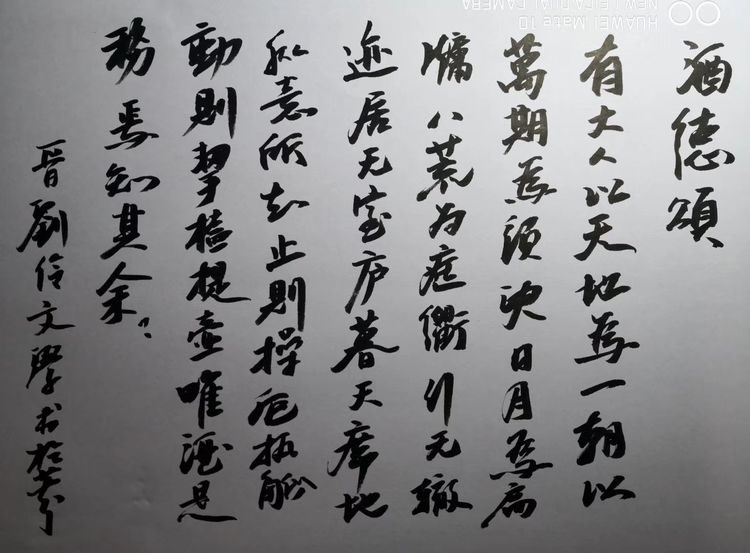 酒德頌
有大人以天地為一朝以
萬期為須臾日月為扃
牖八荒为庭衢行无辙
迹居无室庐暮天席地
纵意所如止則操卮执觚
動則挈榼提壶唯酒是
務焉知其余
晋劉伶文學书於
HUAWEI Mate 10
NEW LEICA DUAL CAMERA